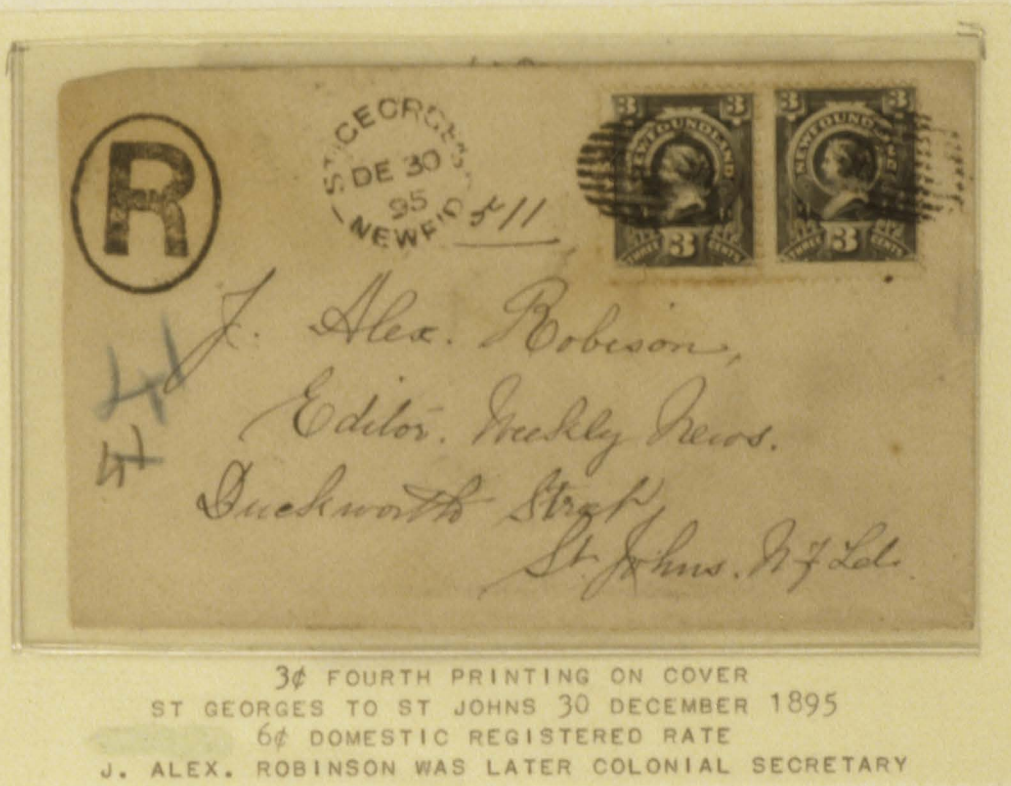 R
ST. GEORGE'S
DE 30
95
NEWF'D
511
3 3
NEWFOUNDLAND
THREE 3 CENTS
3 3
NEWFOUNDLAND
THREE 3 CENTS
J. Alex. Robison,
Editor. Weekly News.
Duckworth Street,
St. Johns. Nf Ld.
3¢ FOURTH PRINTING ON COVER
ST GEORGES TO ST JOHNS 30 DECEMBER 1895
6¢ DOMESTIC REGISTERED RATE
J. ALEX. ROBINSON WAS LATER COLONIAL SECRETARY